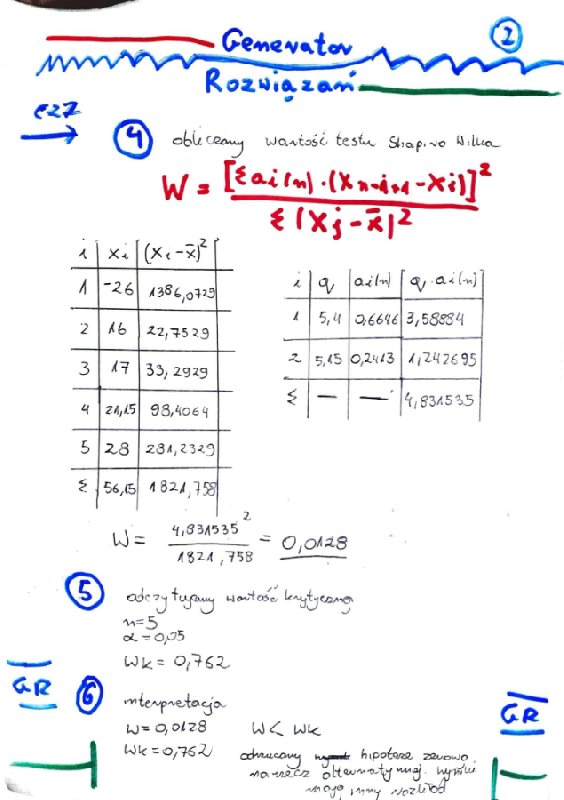 Generator
2
Rozwiązań
cz7
4 obliczamy wartość testu Shapiro Wilka
W = [Σ ai(n)·(Xn-i+1 - Xi)]²
Σ(Xj - x̄)²
i | xi | (xi-x̄)²
1 | -26 | 1386,0729
2 | 16 | 22,7529
3 | 17 | 33,2929
4 | 21,15 | 98,4064
5 | 28 | 281,2329
Σ | 56,15 | 1821,758
i | q | ai(n) | q·ai(n)
1 | 5,4 | 0,6646 | 3,58884
2 | 5,15 | 0,2413 | 1,242695
Σ | — | — | 4,831535
W = 4,831535² / 1821,758 = 0,0128
5 odczytujemy wartość krytyczną
n=5
α=0,05
Wk = 0,762
GR
6 interpretacja
W=0,0128 W< Wk
Wk=0,762 odrzucamy hipotezę zerową,
na rzecz alternatywnej. wyniki
mają inny rozkład
GR